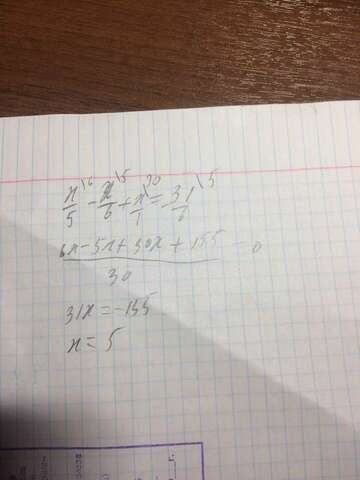 x/5 \6 - x/6 \5 + x/1 \30 = 31/6 \5
6x-5x+30x+155/30 = 0
31x=-155
x= 5